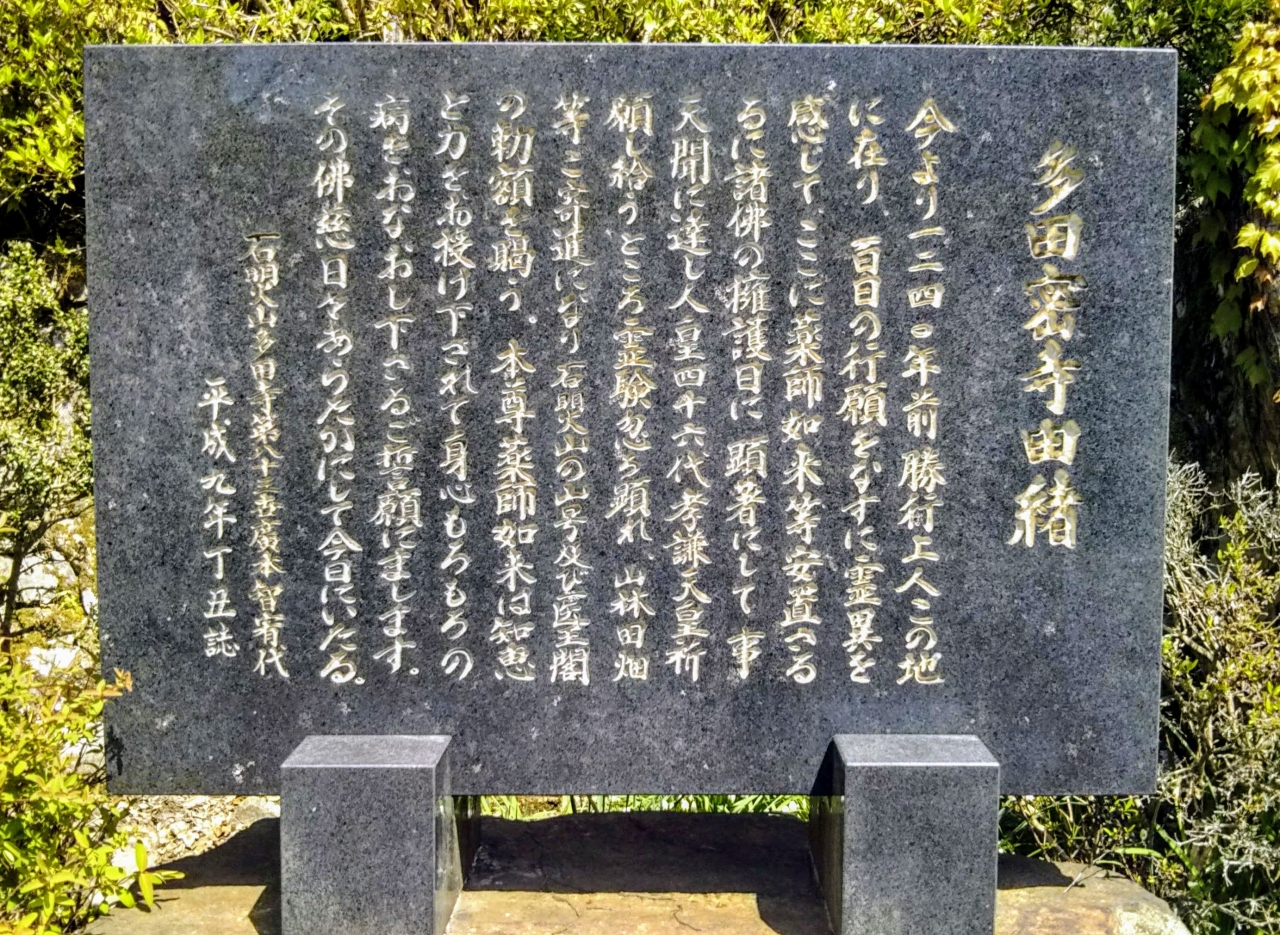 多田密寺由緒
今より一二四〇年前勝行上人この地
に在り、百日の行願をなすに霊異を
感じて、ここに薬師如来等安置する
るに諸佛の擁護日に顕著にして事
天聞に達し人皇四十六代孝謙天皇祈
願し給うところ霊験忽ち顕れ、山林田畑
等ご寄進になり石照山の山号及び医王閣
の勅額を賜う。本尊薬師如来は知恵
と力をお授け下されて身心もろもろの
病をおなおし下さるご誓願にまします。
その佛慈日々あらたかにして今日にいたる。
石照山多田寺第八十三世廣本智宥代
平成九年丁丑誌